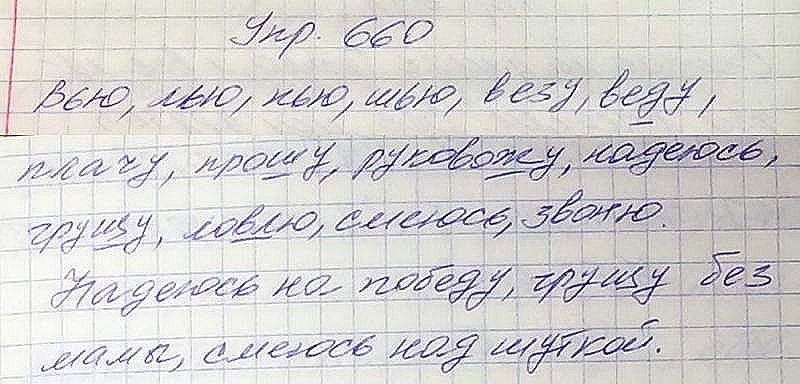 Упр. 660
Вью, лью, пью, шью, везу, веду,
плачу, прошу, руковожу, надеюсь,
грущу, ловлю, смеюсь, звоню.
Надеюсь на победу, грущу без
мамы, смеюсь над шуткой.